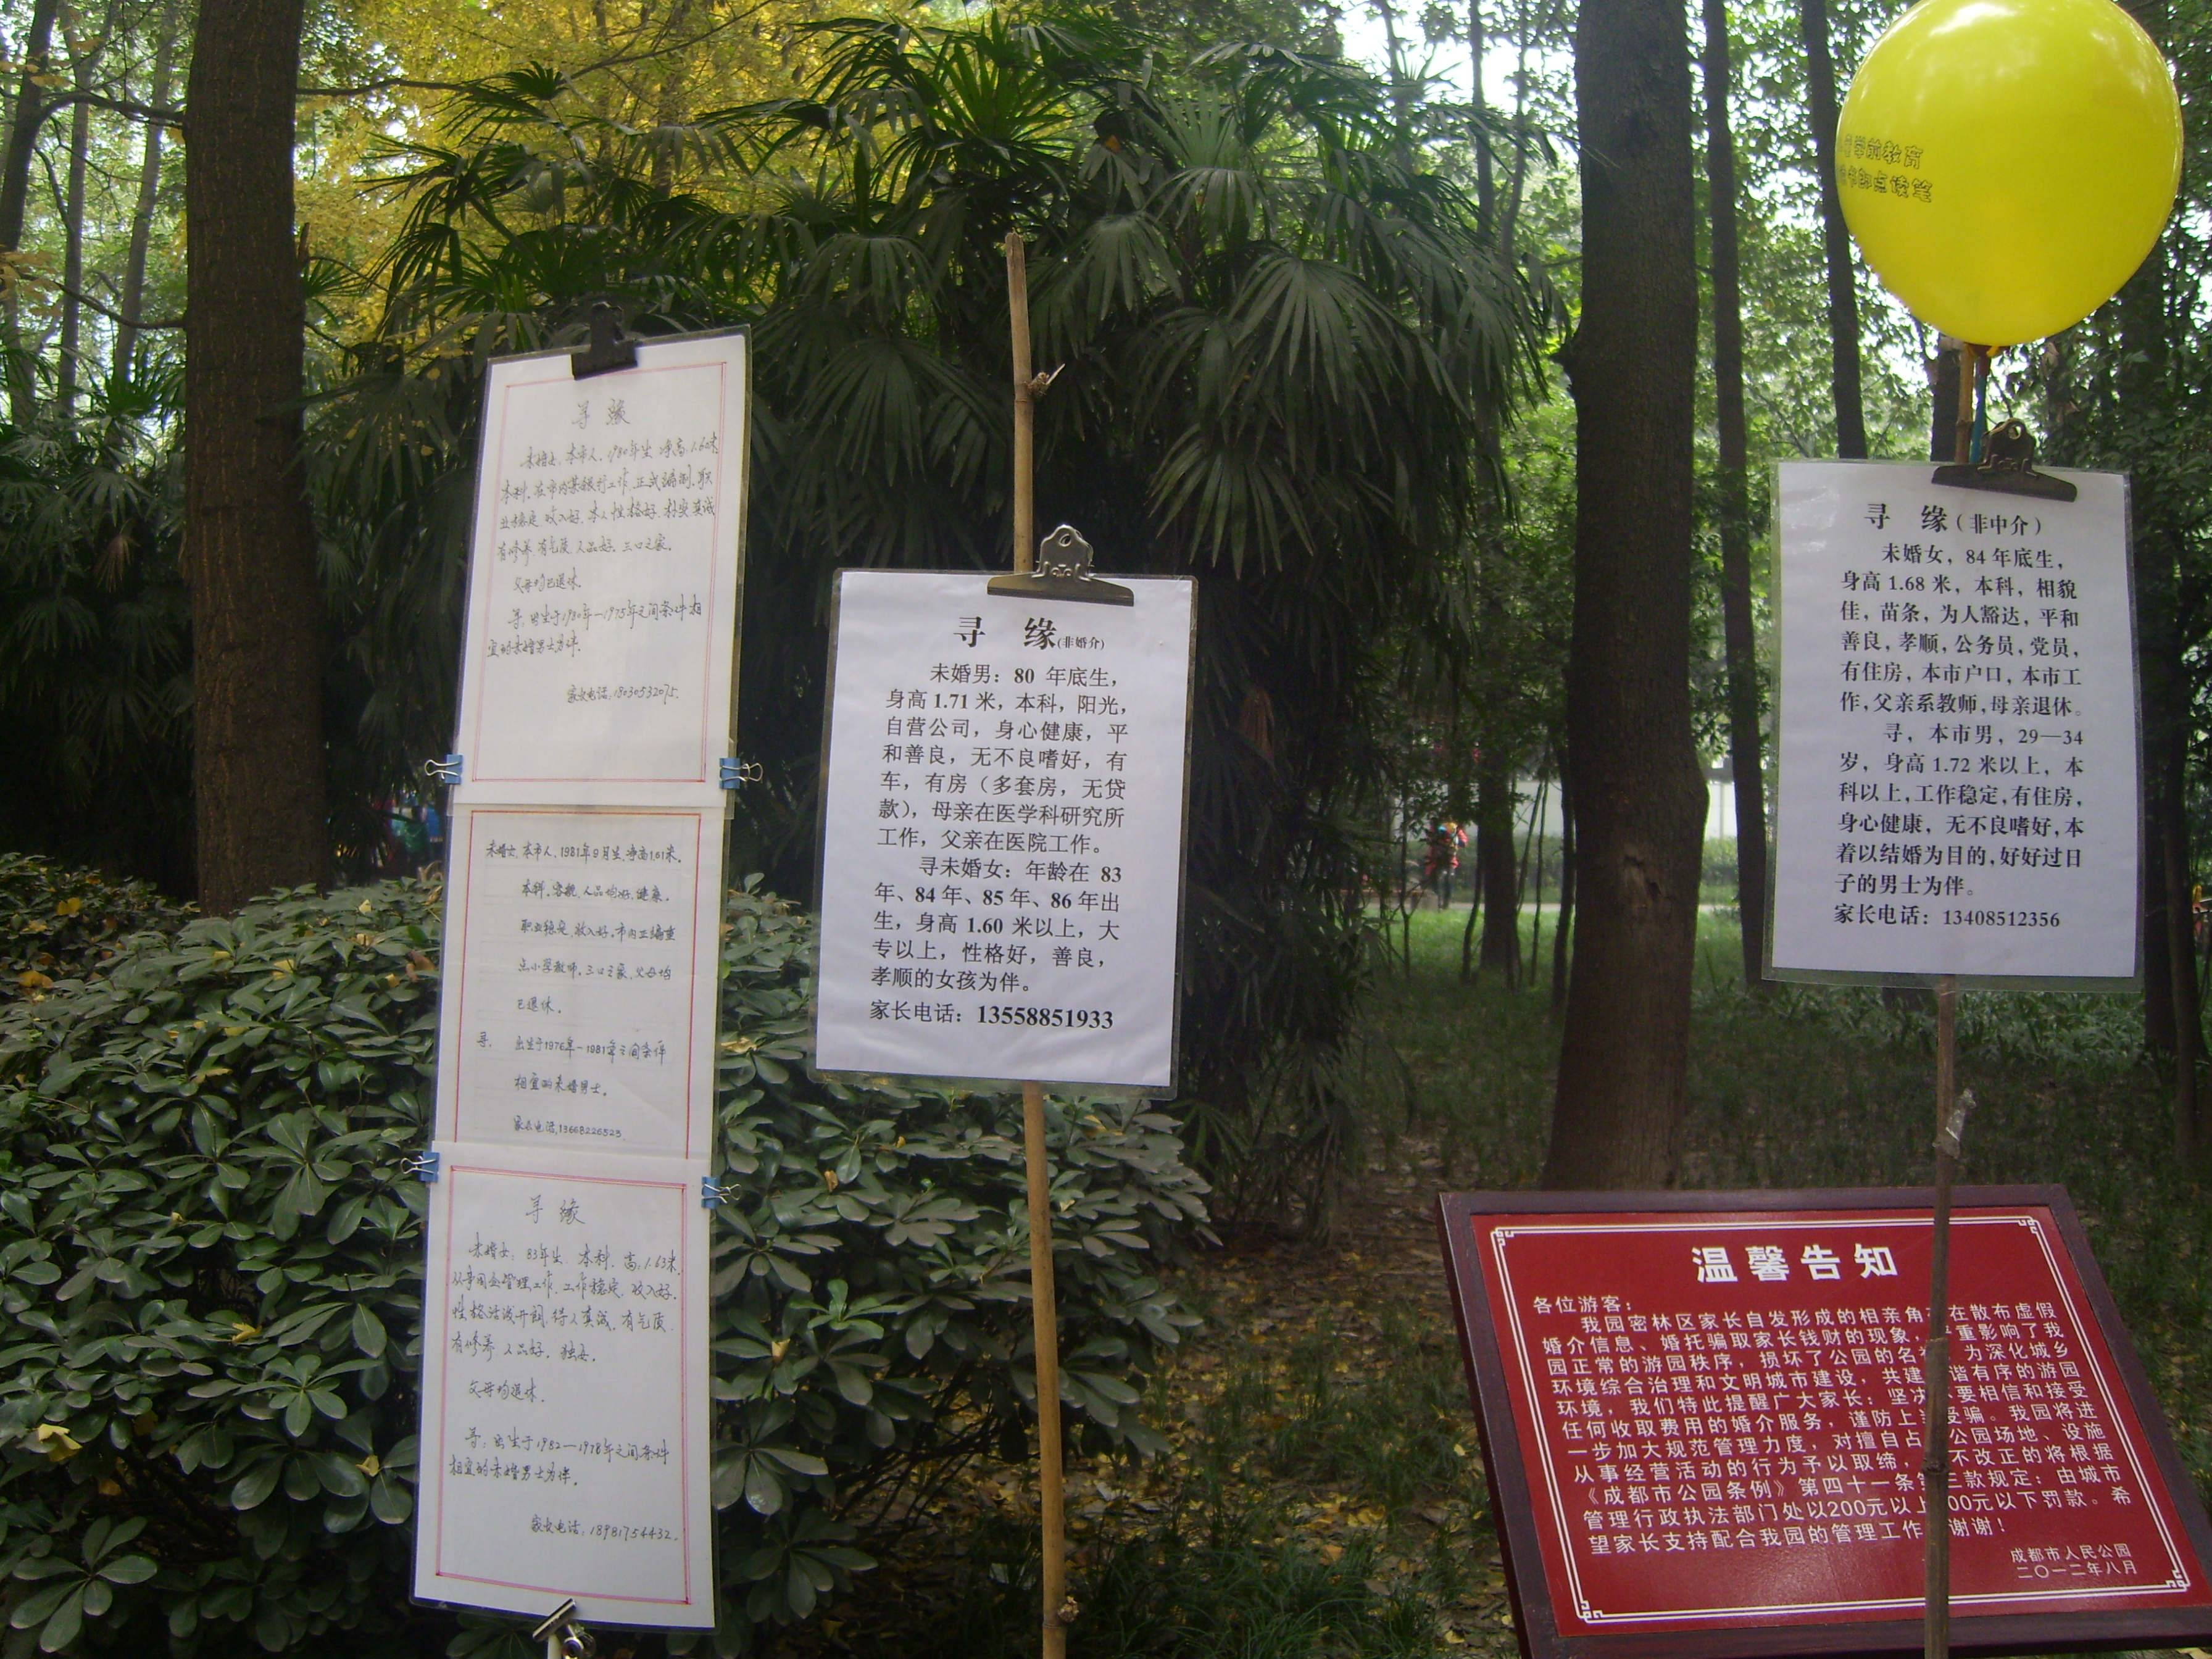 寻 缘
未婚女，本市人，1980年生，净高，1.60米，
本科，在市内某银行工作，正式编制，职
业稳定，收入好，本人性格好，朴实真诚
有修养，有气质，人品好，三口之家。
父母均已退休
寻，出生于1980年—1975年之间条件相
宜的未婚男士为伴。
家长电话：18030532075.
未婚女，本市人，1981年9月生，净高1.61米。
本科，容貌，人品均好，健康。
职业稳定，收入好，市内正编重
点小学教师，三口之家，父母均
已退休。
寻，出生于1976年—1981年之间条件
相宜的未婚男士。
家长电话，13668226523
寻 缘
未婚女：83年生，本科，高，1.63米，
管理工作，工作稳定，收入好，
性格活泼开朗，待人真诚，有气质
有修养，人品好，独女。
父母均退休，
寻，出生于1982—1978年之间条件
相宜的未婚男士为伴。
家长电话：18981754432.
寻 缘(非婚介)
未婚男：80 年底生，
身高 1.71 米，本科，阳光，
自营公司，身心健康，平
和善良，无不良嗜好，有
车，有房（多套房，无贷
款），母亲在医学科研究所
工作，父亲在医院工作。
寻未婚女：年龄在 83
年、84 年、85 年、86 年出
生，身高 1.60 米以上，大
专以上，性格好，善良，
孝顺的女孩为伴。
家长电话：13558851933
学前教育
点读笔
寻 缘（非中介）
未婚女，84 年底生，
身高 1.68 米，本科，相貌
佳，苗条，为人豁达，平和
善良，孝顺，公务员，党员，
有住房，本市户口，本市工
作，父亲系教师，母亲退休。
寻，本市男，29—34
岁，身高 1.72 米以上，本
科以上，工作稳定，有住房，
身心健康，无不良嗜好，本
着以结婚为目的，好好过日
子的男士为伴。
家长电话：13408512356
温馨告知
各位游客：
我园密林区家长自发形成的相亲角存在散布虚假
婚介信息、婚托骗取家长钱财的现象，严重影响了我
园正常的游园秩序，损坏了公园的名誉。为深化城乡
环境综合治理和文明城市建设，共建和谐有序的游园
环境，我们特此提醒广大家长：坚决不要相信和接受
任何收取费用的婚介服务，谨防上当受骗。我园将进
一步加大规范管理力度，对擅自占用公园场地、设施
从事经营活动的行为予以取缔，不改正的将根据
《成都市公园条例》第四十一条第三款规定：由城市
管理行政执法部门处以200元以上00元以下罚款。希
望家长支持配合我园的管理工作，谢谢！
成都市人民公园
二〇一二年八月